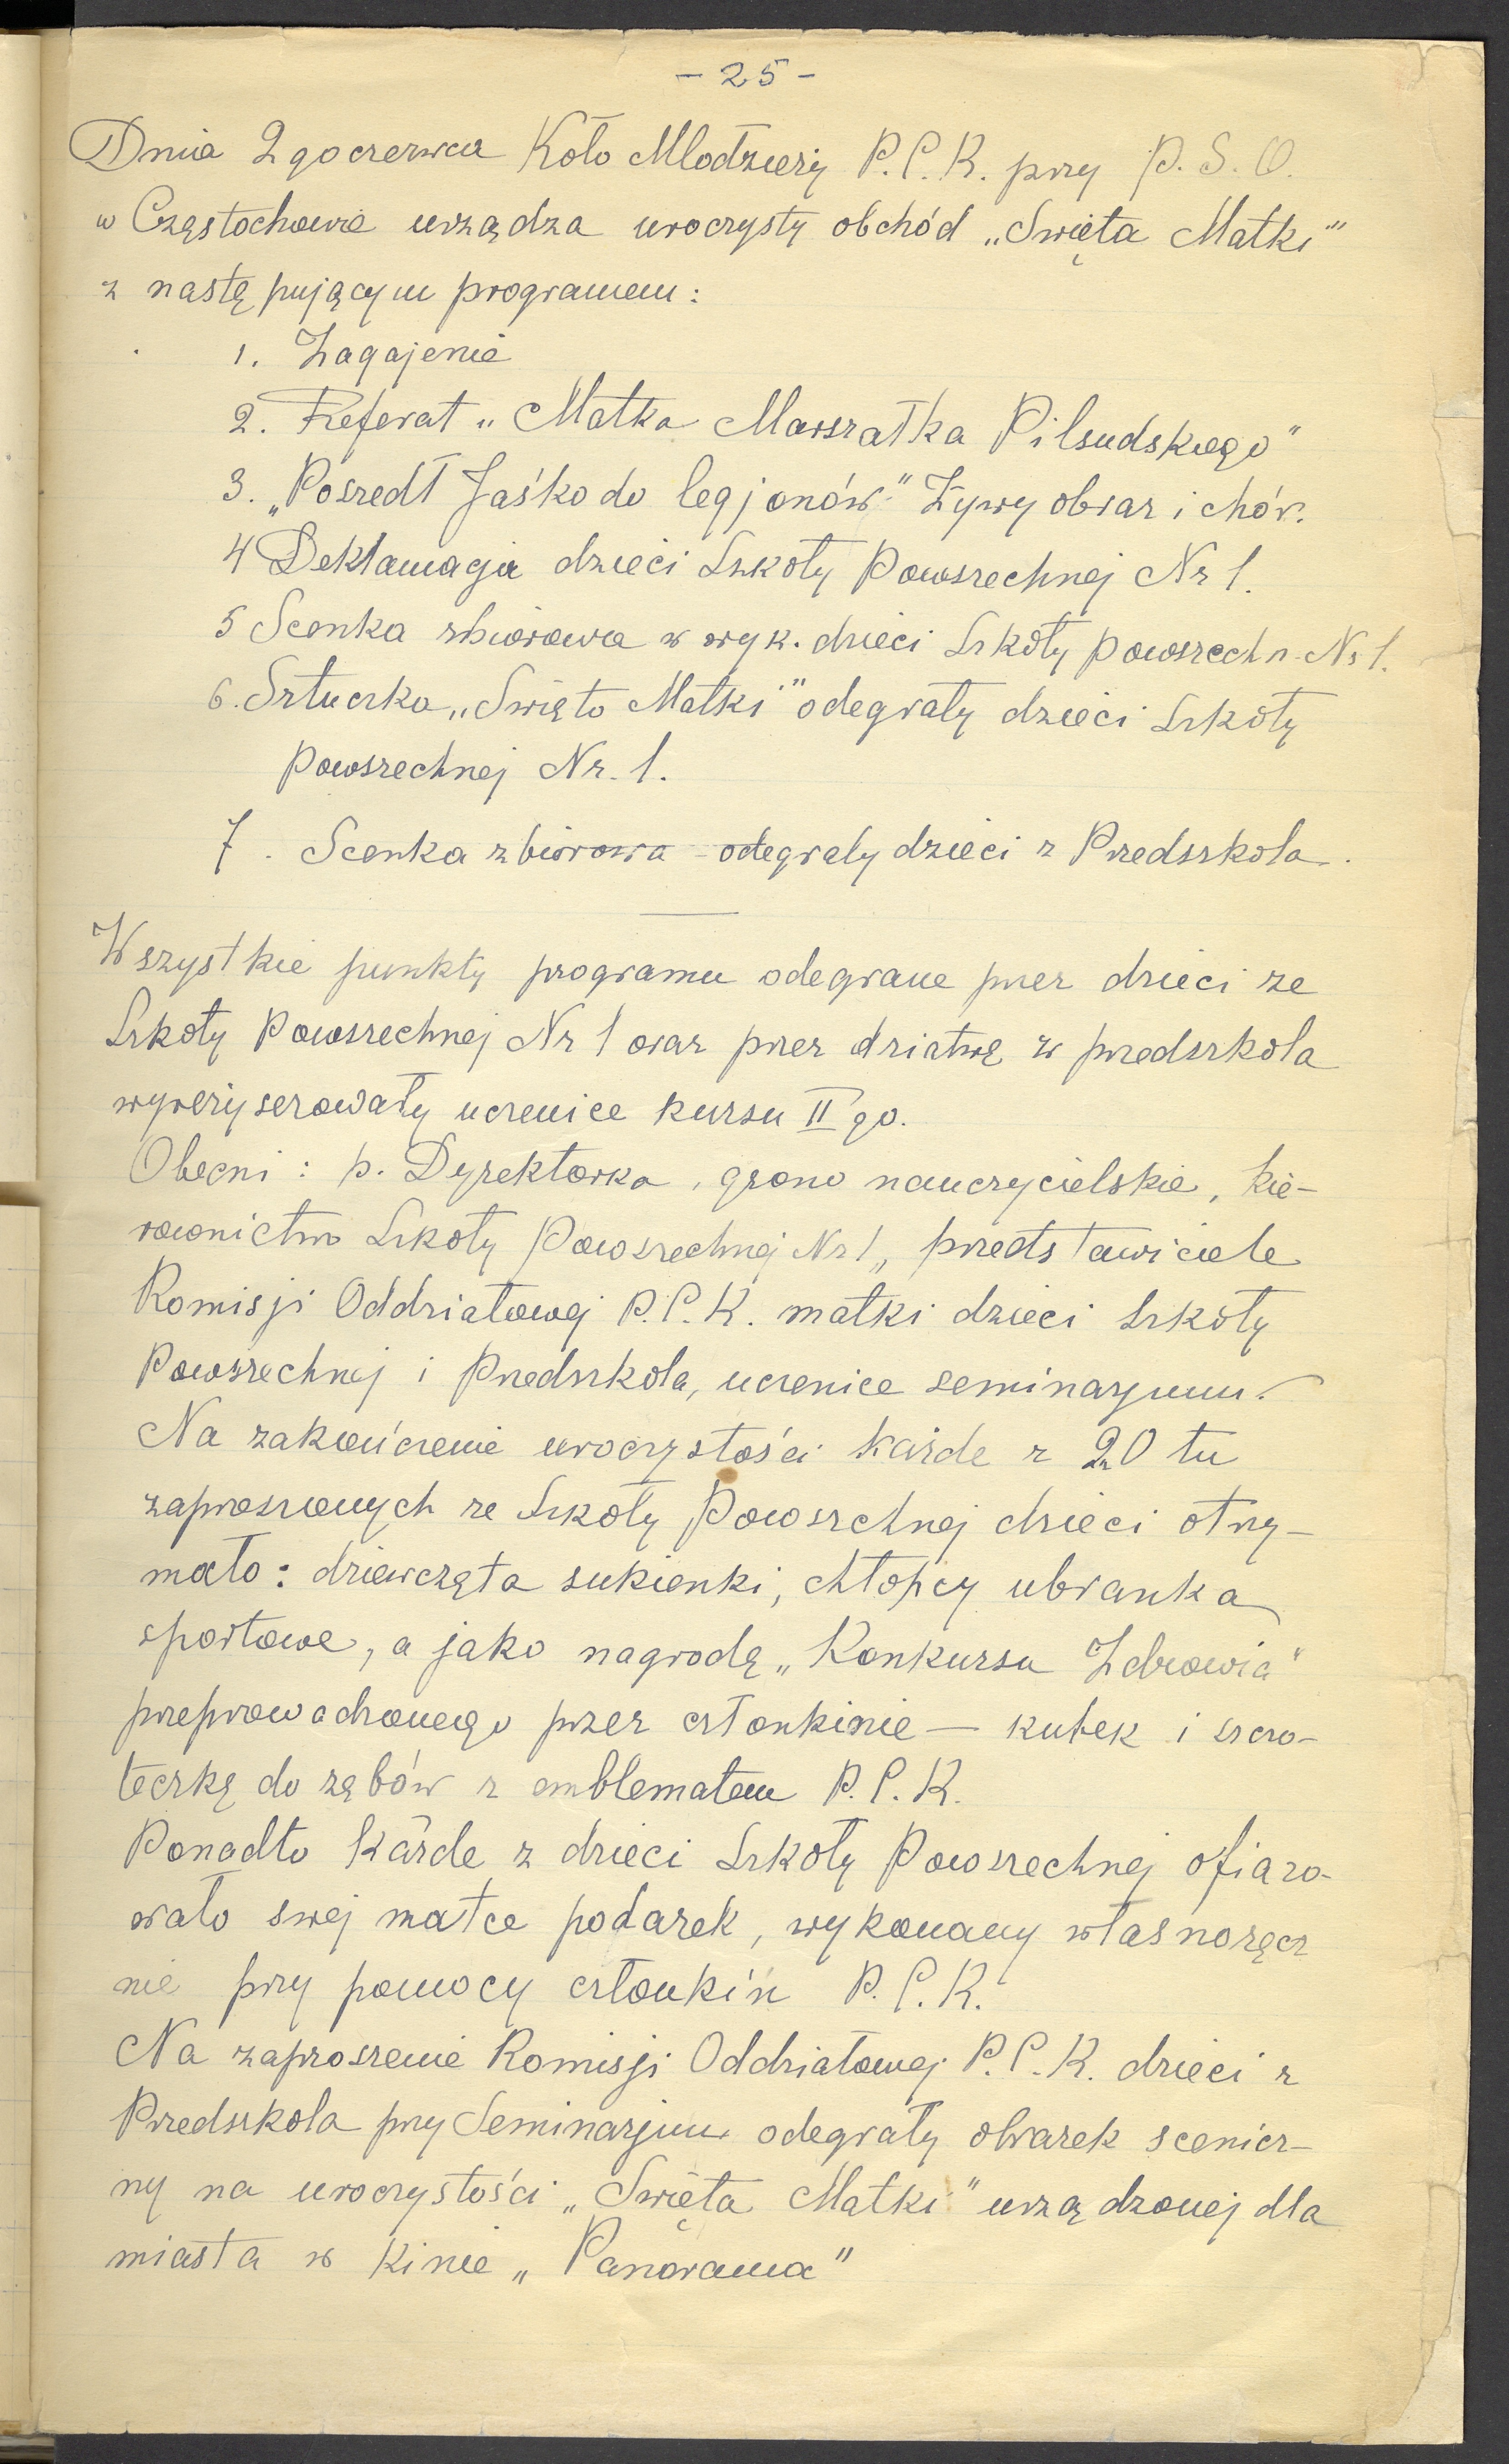 - 25 -
Dnia 2go czerwca Koło Młodzieży P.C.K. przy P.S.O.
w Częstochowie urządza uroczysty obchód „Święta Matki"
z następującym programem:
1. Zagajenie
2. Referat „Matka Marszałka Piłsudskiego"
3. „Poszedł Jaśko do legjonów" Żywy obraz i chór.
4 Deklamacja dzieci Szkoły Powszechnej Nr 1.
5 Scenka zbiorowa w wyk. dzieci Szkoły powszechn. Nr 1.
6. Sztuczka „Święto Matki" odegrały dzieci Szkoły
Powszechnej Nr. 1.
7. Scenka zbiorowa - odegrały dzieci z Przedszkola.
Wszystkie punkty programu odegrane przez dzieci ze
Szkoły Powszechnej Nr 1 oraz przez dziatwę z przedszkola
wyreżyserowały uczenice kursu II go.
Obecni: p. Dyrektorka, grono nauczycielskie, kie-
rownictwo Szkoły Powszechnej Nr 1, przedstawiciele
Komisji Oddziałowej P.C.K. matki dzieci Szkoły
Powszechnej i Przedszkola, uczenice seminarjum.
Na zakończenie uroczystości każde z 20 tu
zaproszonych ze Szkoły Powszchnej dzieci otrzy-
mało: dziewczęta sukienki, chłopcy ubranka
sportowe, a jako nagrodę „Konkursu Zdrowia"
przeprowadzonego przez członkinie — kubek i szczo-
teczkę do zębów z emblematem P.C.K.
Ponadto każde z dzieci Szkoły Powszechnej ofiaro-
wało swej matce podarek, wykonany własnoręcz
nie przy pomocy członkiń P.C.K.
Na zaproszenie Komisji Oddziałowej P.C.K. dzieci z
Przedszkola przy Seminarjum odegrały obrazek scenicz-
ny na uroczystości „Święta Matki" urządzonej dla
miasta w kinie „Panorama"